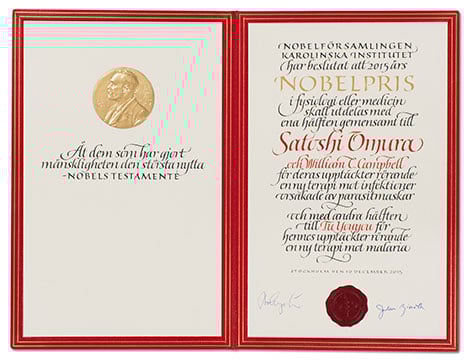 Åt dem som har gjort
mänskligheten den största nytta
-NOBELS TESTAMENTE
NOBELFÖRSAMLINGEN
KAROLINSKA INSTITUTET
har beslutat att 2015 års
NOBELPRIS
i fysiologi eller medicin
skall utdelas med
ena hälften gemensamt till
Satoshi Ōmura
och William C. Campbell
för deras upptäckter rörande
en ny terapi mot infektioner
orsakade av parasitmaskar
och med andra hälften
till Tu Youyou för
hennes upptäckter rörande
en ny terapi mot malaria
STOCKHOLM DEN 10 DECEMBER 2015